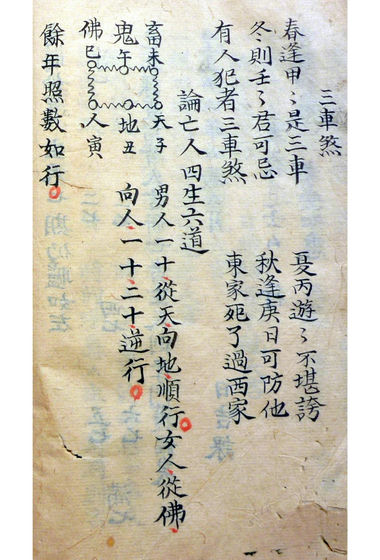 三車煞
春逢甲〻是三車
夏丙遊〻不堪誇
冬則壬〻君可忌
秋逢庚日可防他
有人犯者三車煞
東家死了過西家
論亡人四生六道
畜未
天子
鬼午
地丑
佛巳
人寅
男人一十從天向地順行女人從佛
向人一十二十逆行
餘年照數如行